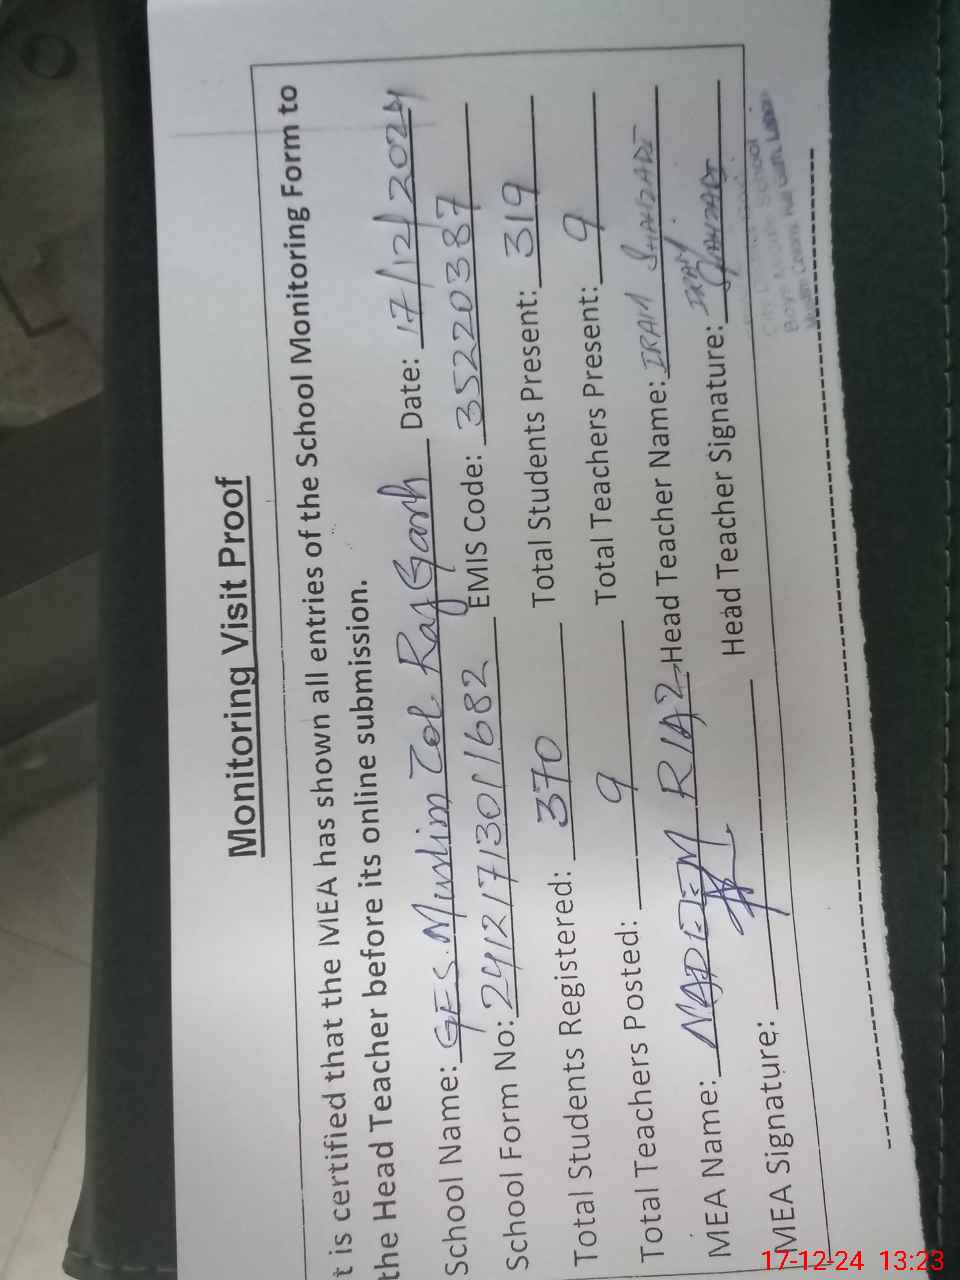 Monitoring Visit Proof
t is certified that the MEA has shown all entries of the School Monitoring Form to
the Head Teacher before its online submission.
School Name: G.E.S. Muslim Col Raj Garh Date: 17/12/2024
School Form No: 24121713011682 EMIS Code: 35220387
Total Students Registered: 370 Total Students Present: 319
Total Teachers Posted: 9 Total Teachers Present: 9
MEA Name: NADEEM RIAZ Head Teacher Name: IRAM SHAHZADI
MEA Signature: Head Teacher Signature: IRAM SHAHZADI
School
Boys Middle School
17-12-24 13:23